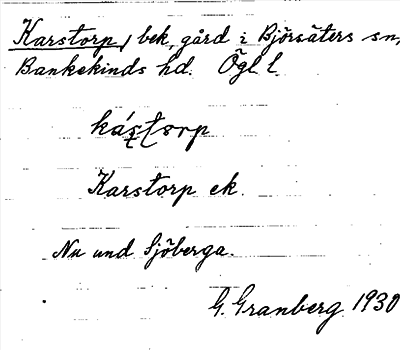 Karstorp, bek, gård i Björsäters sn,
Bankekinds hd. Ögl l
kást̨orp
Karstorp ek.
Nu und Sjöberga.
G. Granberg 1930